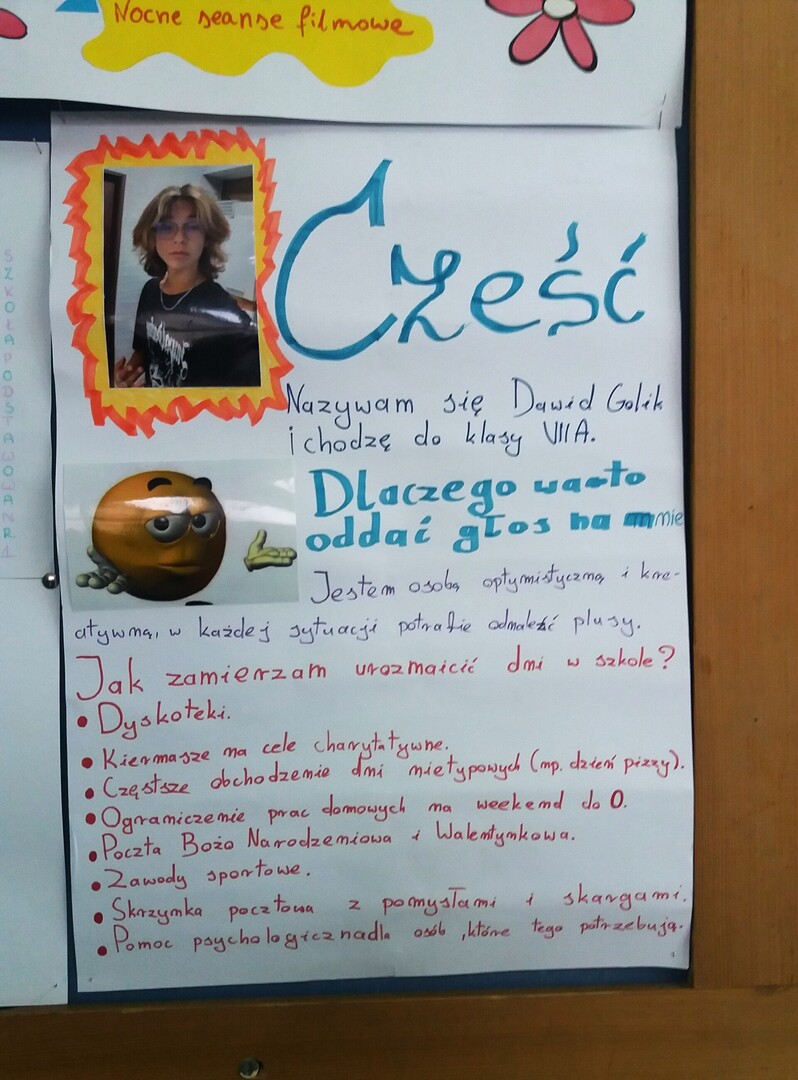 Nocne seanse filmowe
SZKOŁA PODSTAWOWA NR 1
Cześć
Nazywam się Dawid Golik
i chodzę do klasy VIIA.
Dlaczego warto
oddać głos na mnie
Jestem osobą optymistyczną i kre-
atywną, w każdej sytuacji potrafie odnaleźć plusy.
Jak zamierzam urozmaicić dni w szkole?
• Dyskoteki.
• Kiermasze na cele charytatywne.
• Częstsze obchodzenie dni nietypowych (np. dzień pizzy).
• Ograniczenie prac domowych na weekend do 0.
• Poczta Bożo Narodzeniowa i Walentynkowa.
• Zawody sportowe.
• Skrzynka pocztowa z pomysłami i skargami.
• Pomoc psychologicznadla osób ,które tego potrzebują.